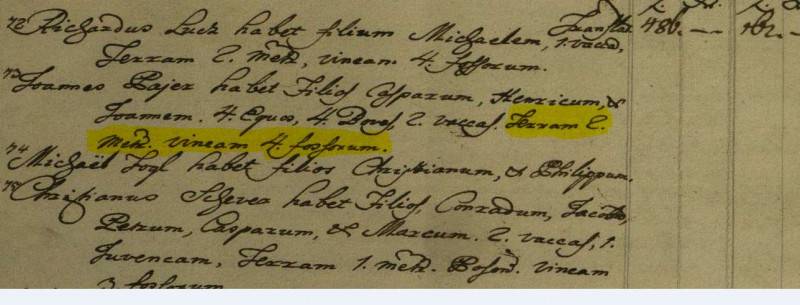 Translat. 486. — 162. —
72 Richardus Lutz habet filium Michaelem, 1. vacca,
Terram 2. metr. vineam 4. fossorum.
73 Joannes Pajer habet Filios Casparum, Henricum, &
Joannem. 4. Equos, 4. Boves, 2. vaccas. Terram 2.
metr. vineam 4. fossorum.
74 Michaël Fogl habet filios Christianum, & Philippum.
75 Christianus Scherer habet Filios, Conradum, Jacobum,
Petrum, Casparum, & Marcum. 2. vaccas, 1.
Juvencam, Terram 1. metr. Poson. vineam
3. fossorum